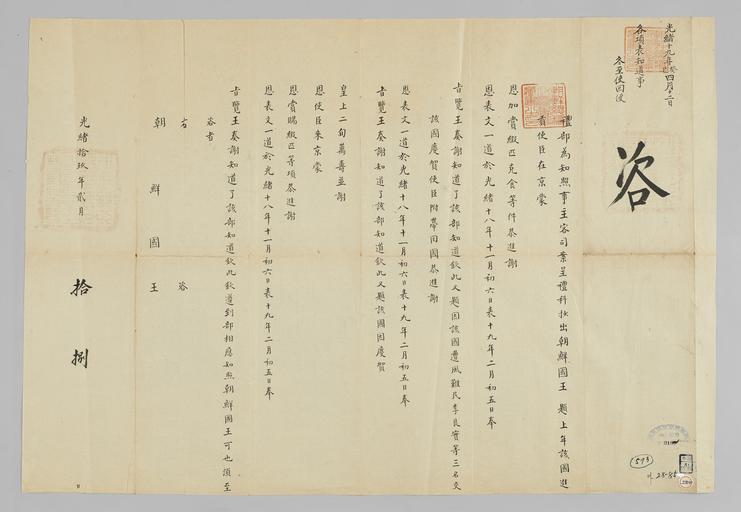 光緒十九年癸巳四月十二日
各項表知道事
冬至使回便
咨
禮部為知照事主客司案呈禮科抄出朝鮮國王 題上年該國進
貢使臣在京蒙
恩加賞緞疋克食等件恭進謝
恩表文一道於光緒十八年十一月初六日表十九年二月初五日奉
旨覽王奏謝知道了該部知道欽此又題因該國遭風難民李良實等三名交
該國慶賀使臣附帶回國恭進謝
恩表文一道於光緒十八年十一月初六日表十九年二月初五日奉
旨覽王奏謝知道了該部知道欽此又題該國因慶賀
皇上二旬萬壽並謝
恩使臣來京蒙
恩賞賜緞疋等項恭進謝
恩表文一道於光緒十八年十一月初六日表十九年二月初五日奉
旨覽王奏謝知道了該部知道欽此欽遵到部相應知照朝鮮國王可也須至
咨者
右 咨
朝鮮國王
光緒拾玖年貳月 拾捌 日
593